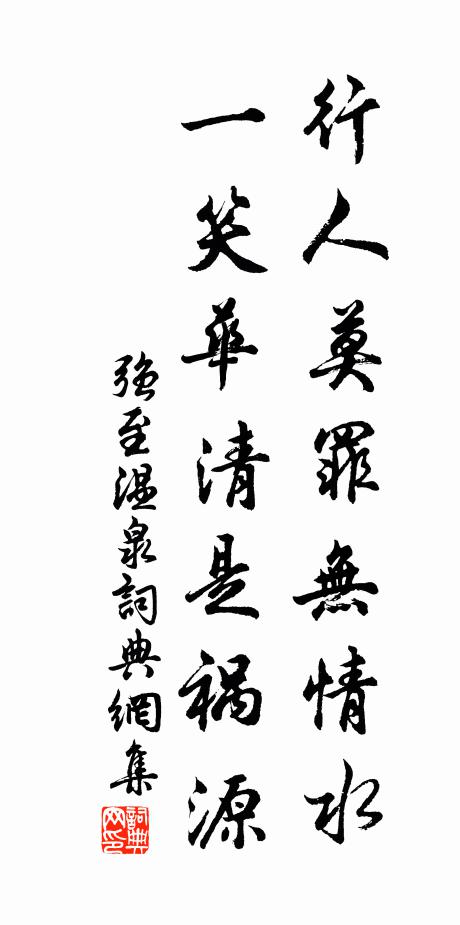 行人莫罪無情水
一笑華清是禍源
强至溫泉詞典網集
詞典網印